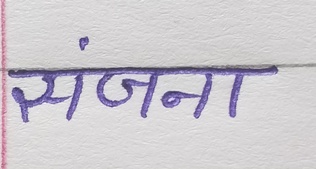 संजना